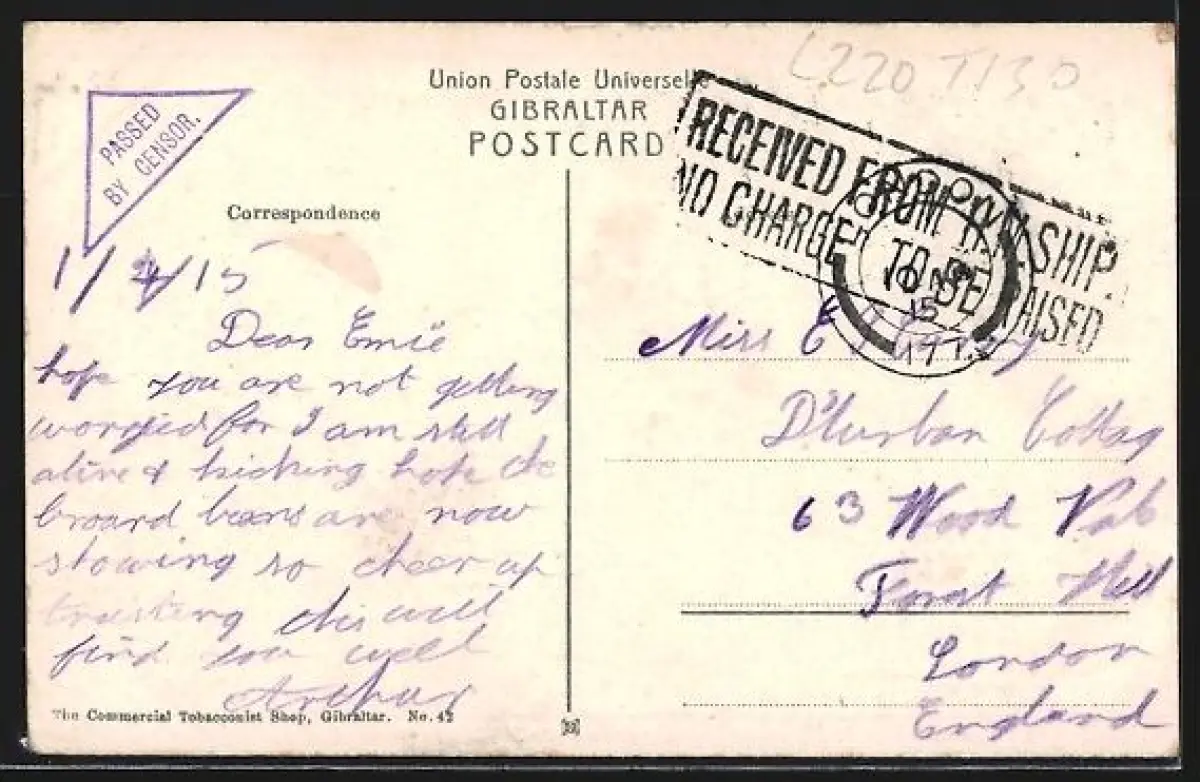 L220 T130
Union Postale Universelle
GIBRALTAR
POSTCARD
PASSED
BY CENSOR.
RECEIVED FROM H.M. SHIP.
NO CHARGE TO BE RAISED
LONDON
15
Correspondence
1/4/15
Dear Emie
hope you are not getting
worried for I am still
alive & kicking hope the
broard beans are now
showing so cheer up
trusting this will
find you well
Arthur
Miss E
D'Urban Cottag
63 Wood Vale
Forest Hill
London
England
The Commercial Tobacconist Shop, Gibraltar. No. 42